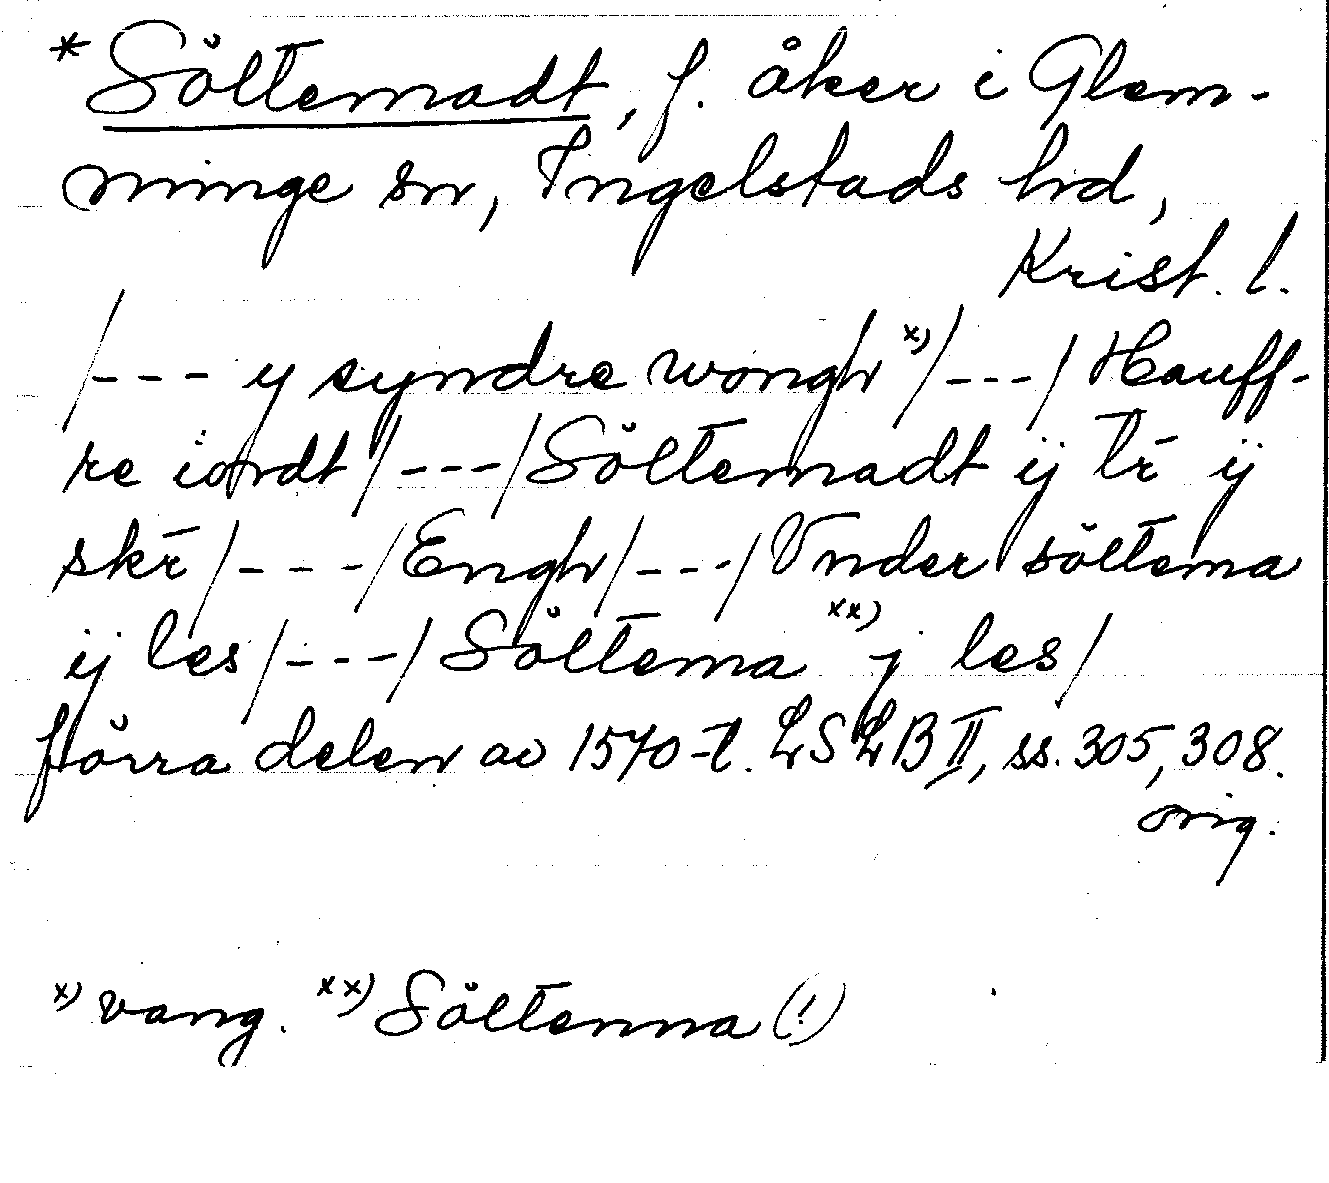 *Sŏltemadt, f. åker i Glem-
minge sn, Ingelstads hd,
Krist. l.
/--- y syndre wongh x)/---/ Hauff-
re iordt/---/Sŏltemadt ij tr̄ ij
skr̄/---/Engh/---/Vnder sŏltema
ij les/---/Sŏltema xx) j les/
förra delen av 1570-t. LSLB II, ss. 305, 308.
orig.
x) vang. xx) Sŏltenna (!)